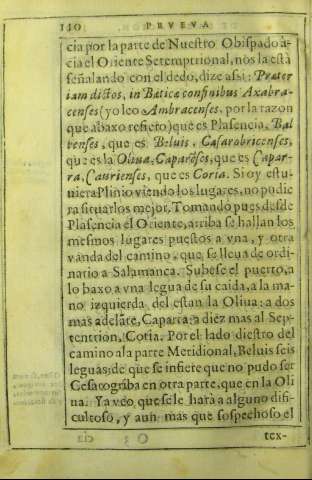 180 PRVEVA
cia por la parte de Nuestro Obispado à-
cia el Oriente Setemptrional, nos la està
señalando con el dedo, dize assi: Præter
iam dictos, in Bætica confinibus Axabra-
censes (yo leo Ambracenses, por la razon
que abaxo refiero) que es Plasencia. Bal
benses, que es Beluis. Cæsarobricenses,
que es la Oliua. Caparẽses, que es Capar-
ra. Caurienses, que es Coria. Si oy estu-
uiera Plinio viendo los lugares, no pudie
ra situarlos mejor. Tomando pues desde
Plasencia el Oriente, arriba se hallan los
mesmos lugares puestos a vna, y otra
vanda del camino, que se lleua de ordi-
nario a Salamanca. Subese el puerto, a
lo baxo a vna legua de su caida, a la ma-
no izquierda, del estan la Oliua: a dos
mas adelãte, Caparra: a diez mas al Sep-
tentrion, Coria. Por el lado diestro del
camino a la parte Meridional, Beluis seis
leguas: de que se infiere que no pudo ser
Cesarogriba en otra parte, que en la Oli
ua. Ya veo que se le harà a alguno difi-
cultoso, y aun mas que sospechoso el
O 3 tex-